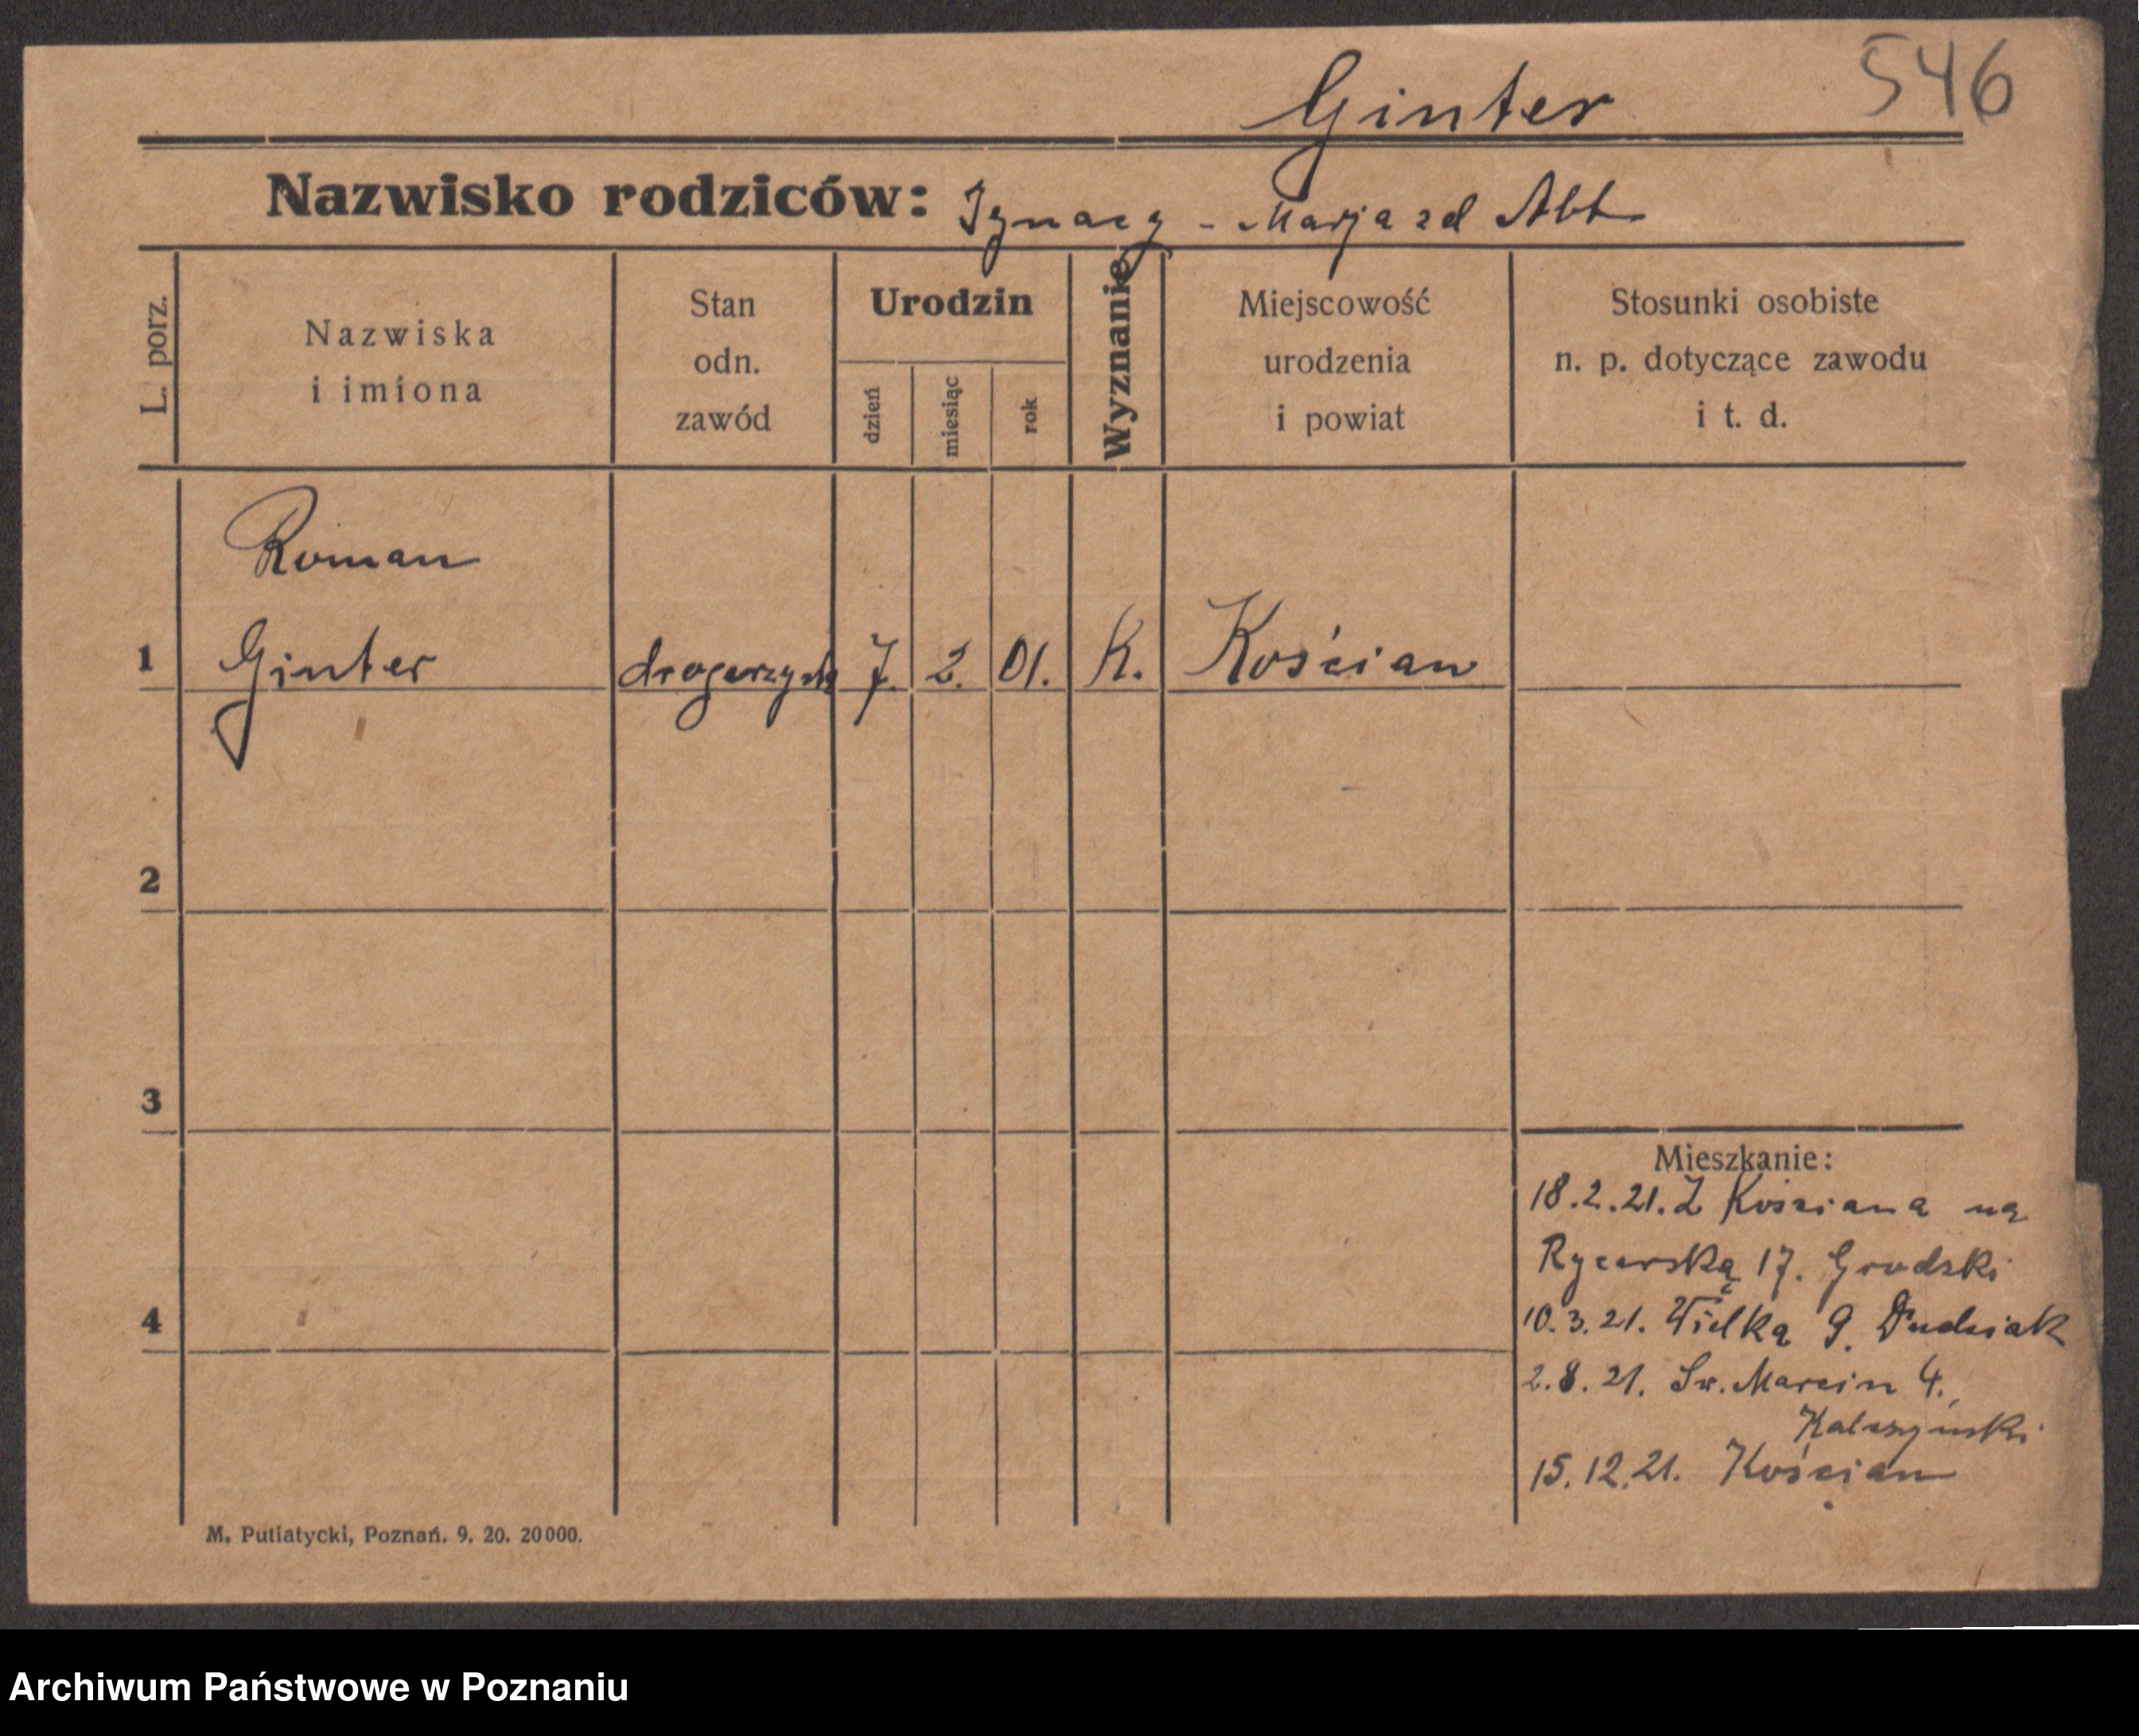 546
Ginter
Nazwisko rodziców: Ignacy - Marja zd Abt
L. porz.
Nazwiska
i imiona
Stan
odn.
zawód
Urodzin
dzień
miesiąc
rok
Wyznanie
Miejscowość
urodzenia
i powiat
Stosunki osobiste
n. p. dotyczące zawodu
i t. d.
Roman
1 Ginter drogerzysta 7. 2. 01. K. Kościan
2
3
4
Mieszkanie:
18.2.21. Z Kościana na
Rycerską 17. Grodzki
10.3.21. Wielka 9. Dudziak
2.8.21. Św. Marcin 4.
15.12.21. Kościan
M. Putiatycki, Poznań. 9. 20. 20000.
Archiwum Państwowe w Poznaniu